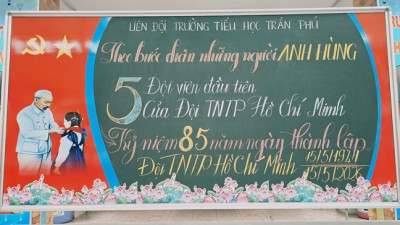 LIÊN ĐỘI TRƯỜNG TIỂU HỌC TRẦN PHÚ
Theo bước chân những người ANH HÙNG
5 Đội viên đầu tiên
Của Đội TNTP Hồ Chí Minh
Kỷ niệm 85 năm ngày thành lập
Đội TNTP Hồ Chí Minh 15/5/1941
15/5/2026